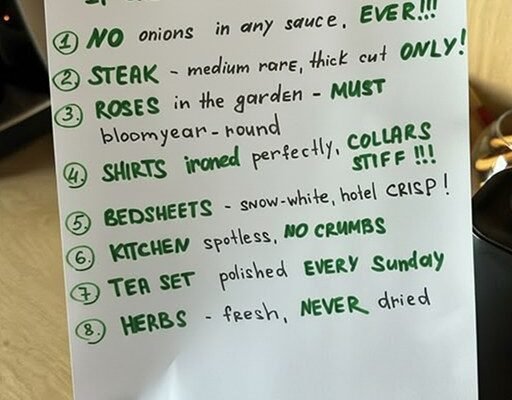 1 NO onions in any sauce, EVER!!!
2. STEAK - medium rare, thick cut ONLY!
3. ROSES in the garden - MUST
bloomyear-round
4. SHIRTS ironed perfectly, COLLARS
STIFF !!!
5. BEDSHEETS - snow-white, hotel CRISP!
6. KITCHEN spotless, NO CRUMBS
7. TEA SET polished EVERY Sunday
8. HERBS - fresh, NEVER dried